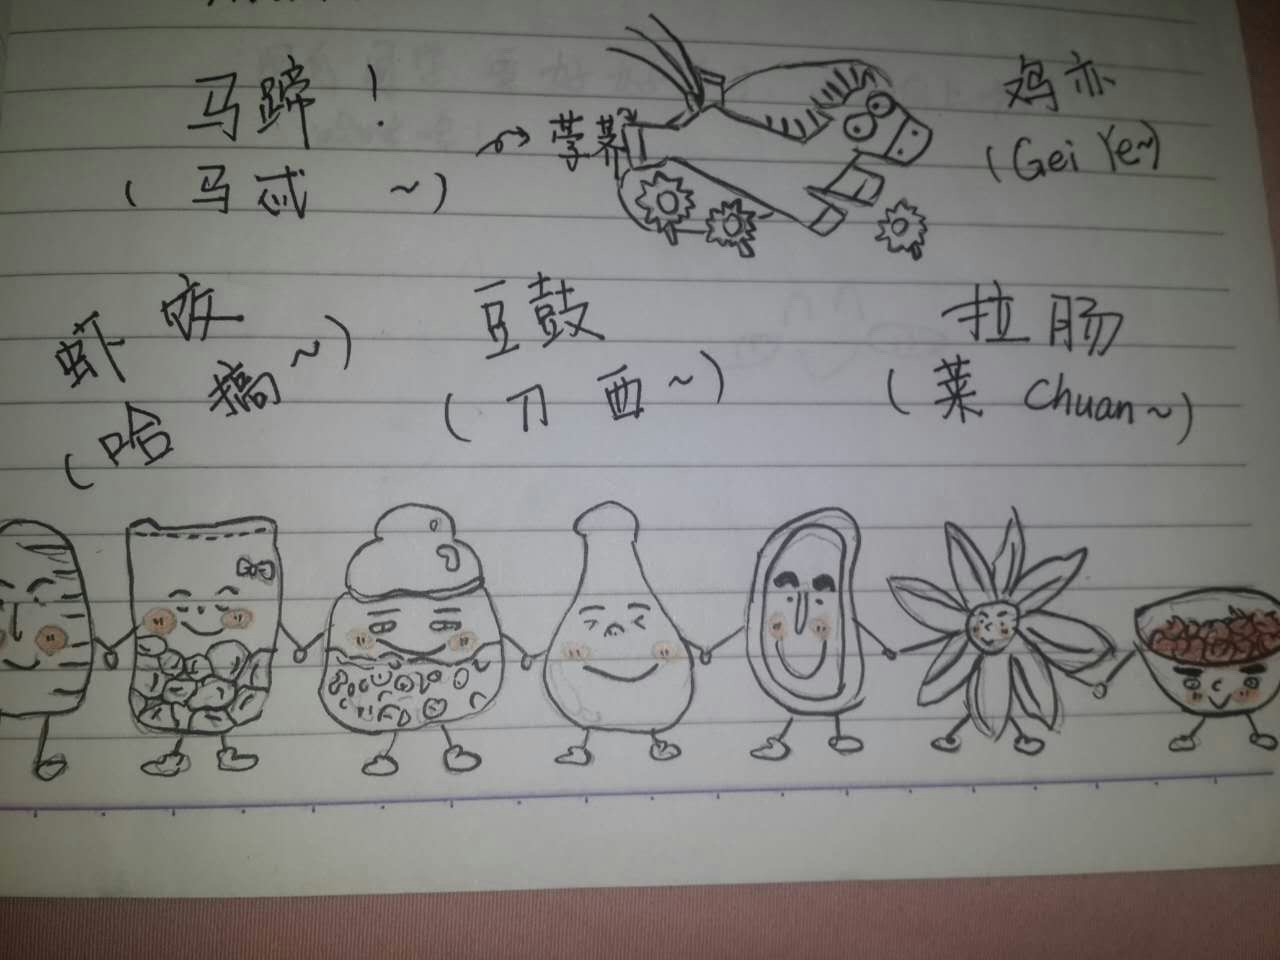 马蹄！
(马忒 ~)
荸荠
鸡亦
(Gei Ye~)
虾
(哈搞~)
豆鼓
(刀西~)
拉肠
(莱 Chuan~)